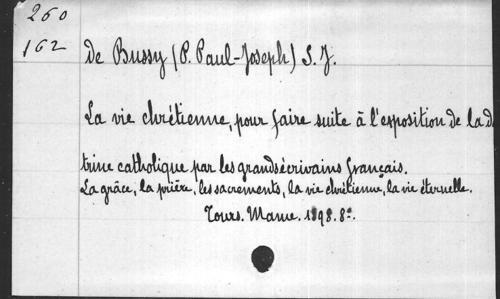 260
162
De Bussy (P. Paul-Joseph) S. J.
La vie chrétienne, pour faire suite à l'exposition de la do
trine catholique par les grands écrivains français.
La grâce, la prière, les sacrements, la vie chrétienne, la vie éternelle.
Tours. Mame. 1898. 8°.